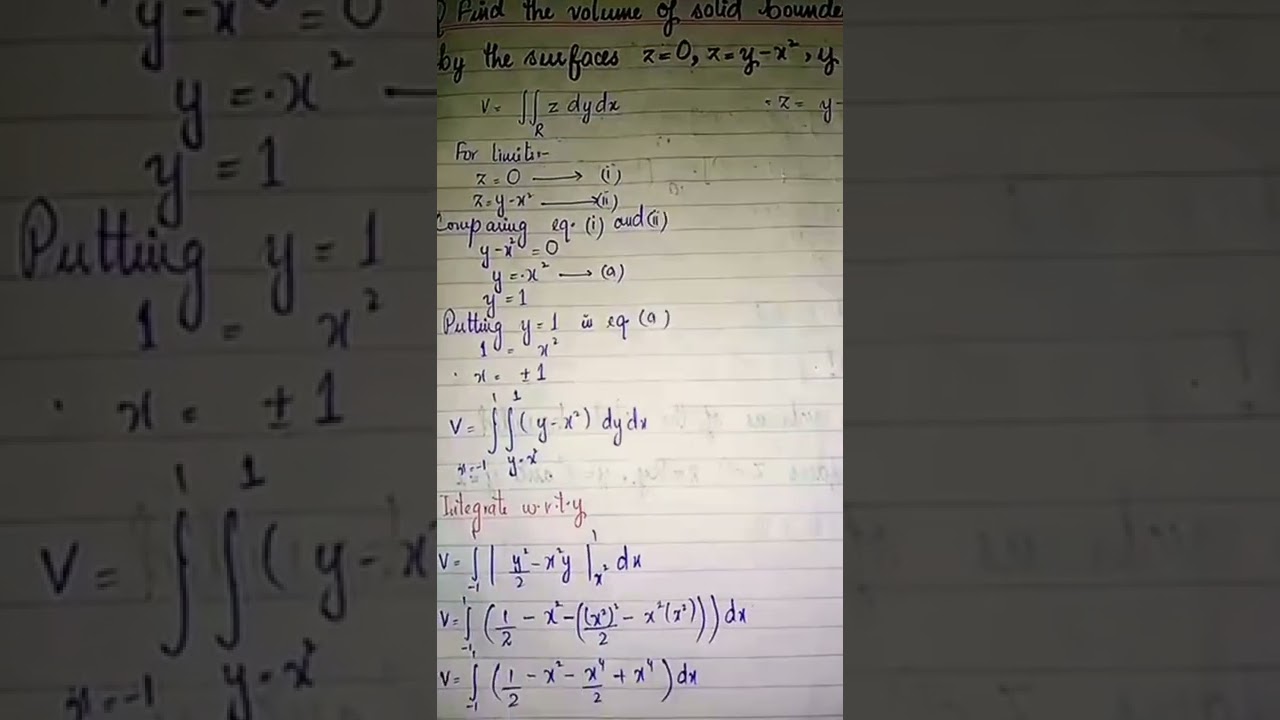 Find the volume of solid bounde
by the surfaces z=0, z=y-x², y
V= ∬_R z dydx = z = y-
For limits:-
z=0 ⟶ (i)
z=y-x² ⟶ (ii)
Comparing eq. (i) and (ii)
y-x²=0
y=x² ⟶ (a)
y=1
Putting y=1 in eq (a)
1 = x²
x = ±1
V= ∫_{x=-1}^{1} ∫_{y=x²}^{1} (y-x²) dydx
Integrate w.r.t y
V= ∫_{-1}^{1} | y²/2 - x²y |_{x²}^{1} dx
V= ∫_{-1}^{1} (1/2 - x² - ((x²)²/2 - x²(x²))) dx
V= ∫_{-1}^{1} (1/2 - x² - x⁴/2 + x⁴) dx
y-x²=0
y=x² —
y=1
Putting y=1
1 = x²
x = ±1
V= ∫_{x=-1}^{1} ∫_{y=x²}^{1} (y-x²